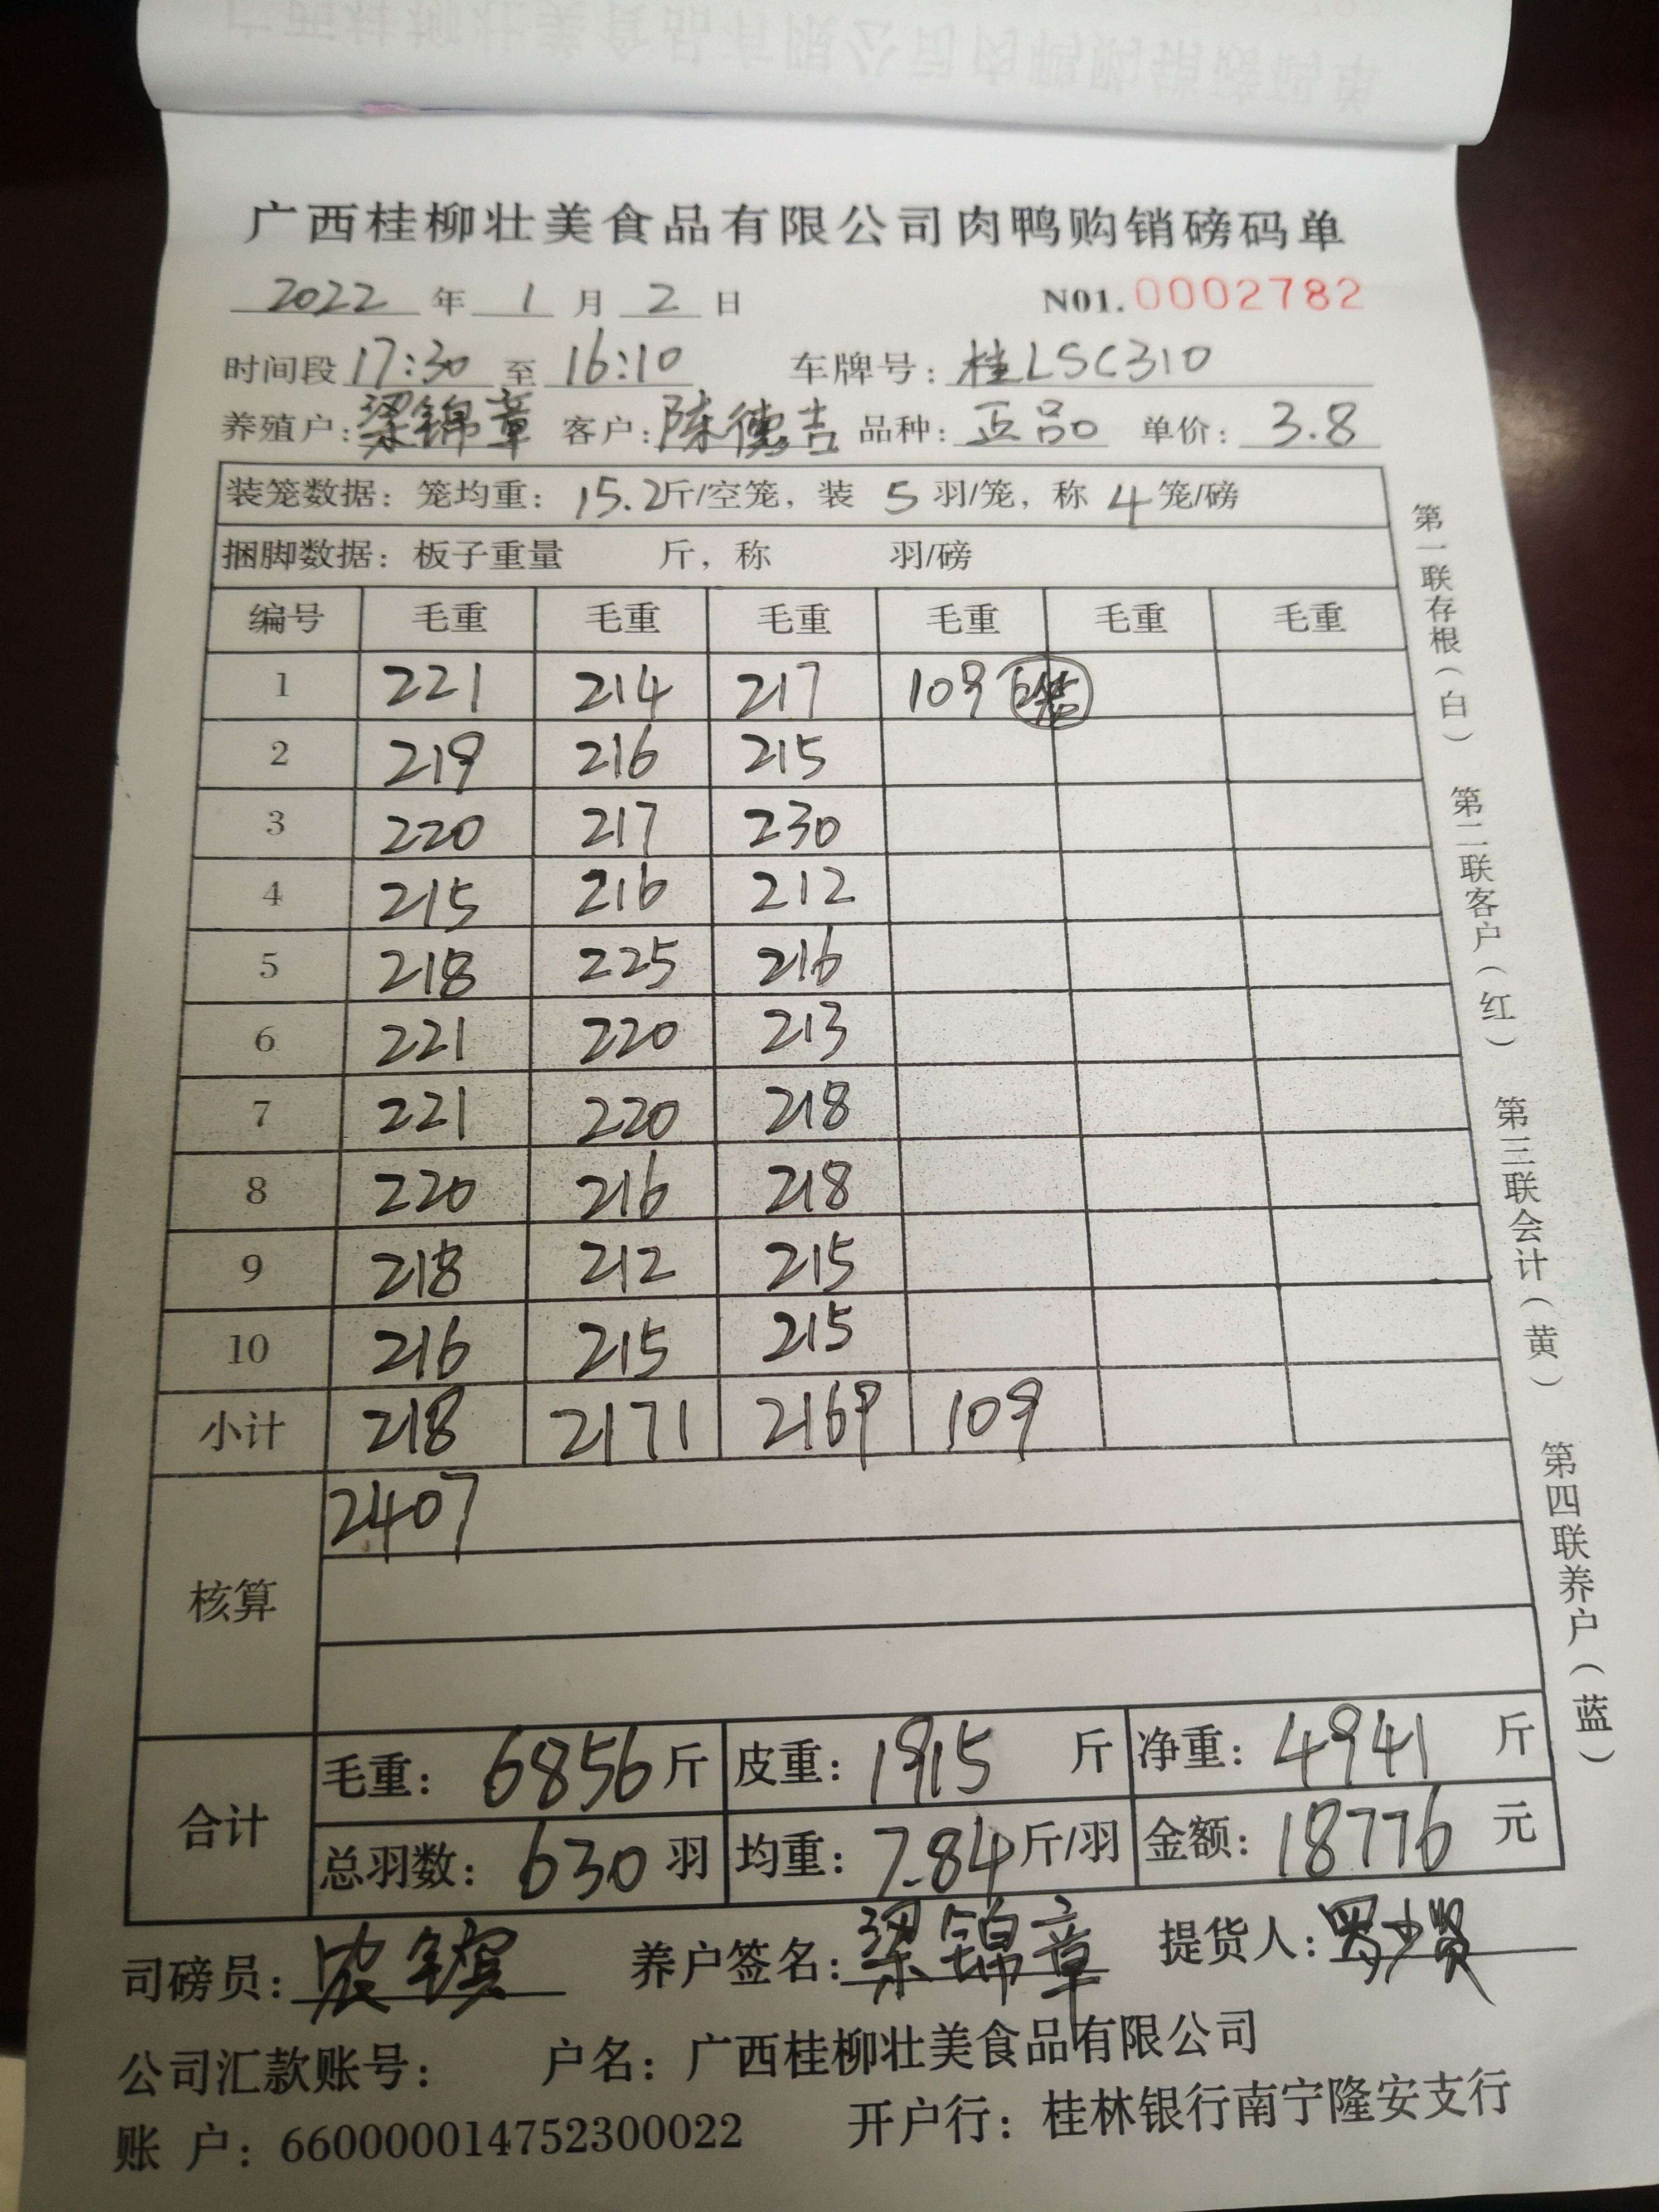 广西桂柳壮美食品有限公司肉鸭购销磅码单
2022 年 1 月 2 日 N01. 0002782
时间段 17:30 至 16:10 车牌号: 桂LSC310
养殖户: 梁锦章 客户: 陈德吉 品种: 正品 单价: 3.8
装笼数据: 笼均重: 15.2斤/空笼, 装 5 羽/笼, 称 4 笼/磅
捆脚数据: 板子重量 斤, 称 羽/磅
编号 毛重 毛重 毛重 毛重 毛重 毛重
1 221 214 217 109
2 219 216 215
3 220 217 230
4 215 216 212
5 218 225 216
6 221 220 213
7 221 220 218
8 220 216 218
9 218 212 215
10 216 215 215
小计 218 2171 2169 109
核算 2407
合计 毛重: 6856 斤 皮重: 1915 斤 净重: 4941 斤
总羽数: 630 羽 均重: 7.84 斤/羽 金额: 18776 元
司磅员: 养户签名: 梁锦章 提货人: 罗少贤
公司汇款账号: 户名: 广西桂柳壮美食品有限公司
账 户: 660000014752300022 开户行: 桂林银行南宁隆安支行
第一联存根(白) 第二联客户(红) 第三联会计(黄) 第四联养户(蓝)